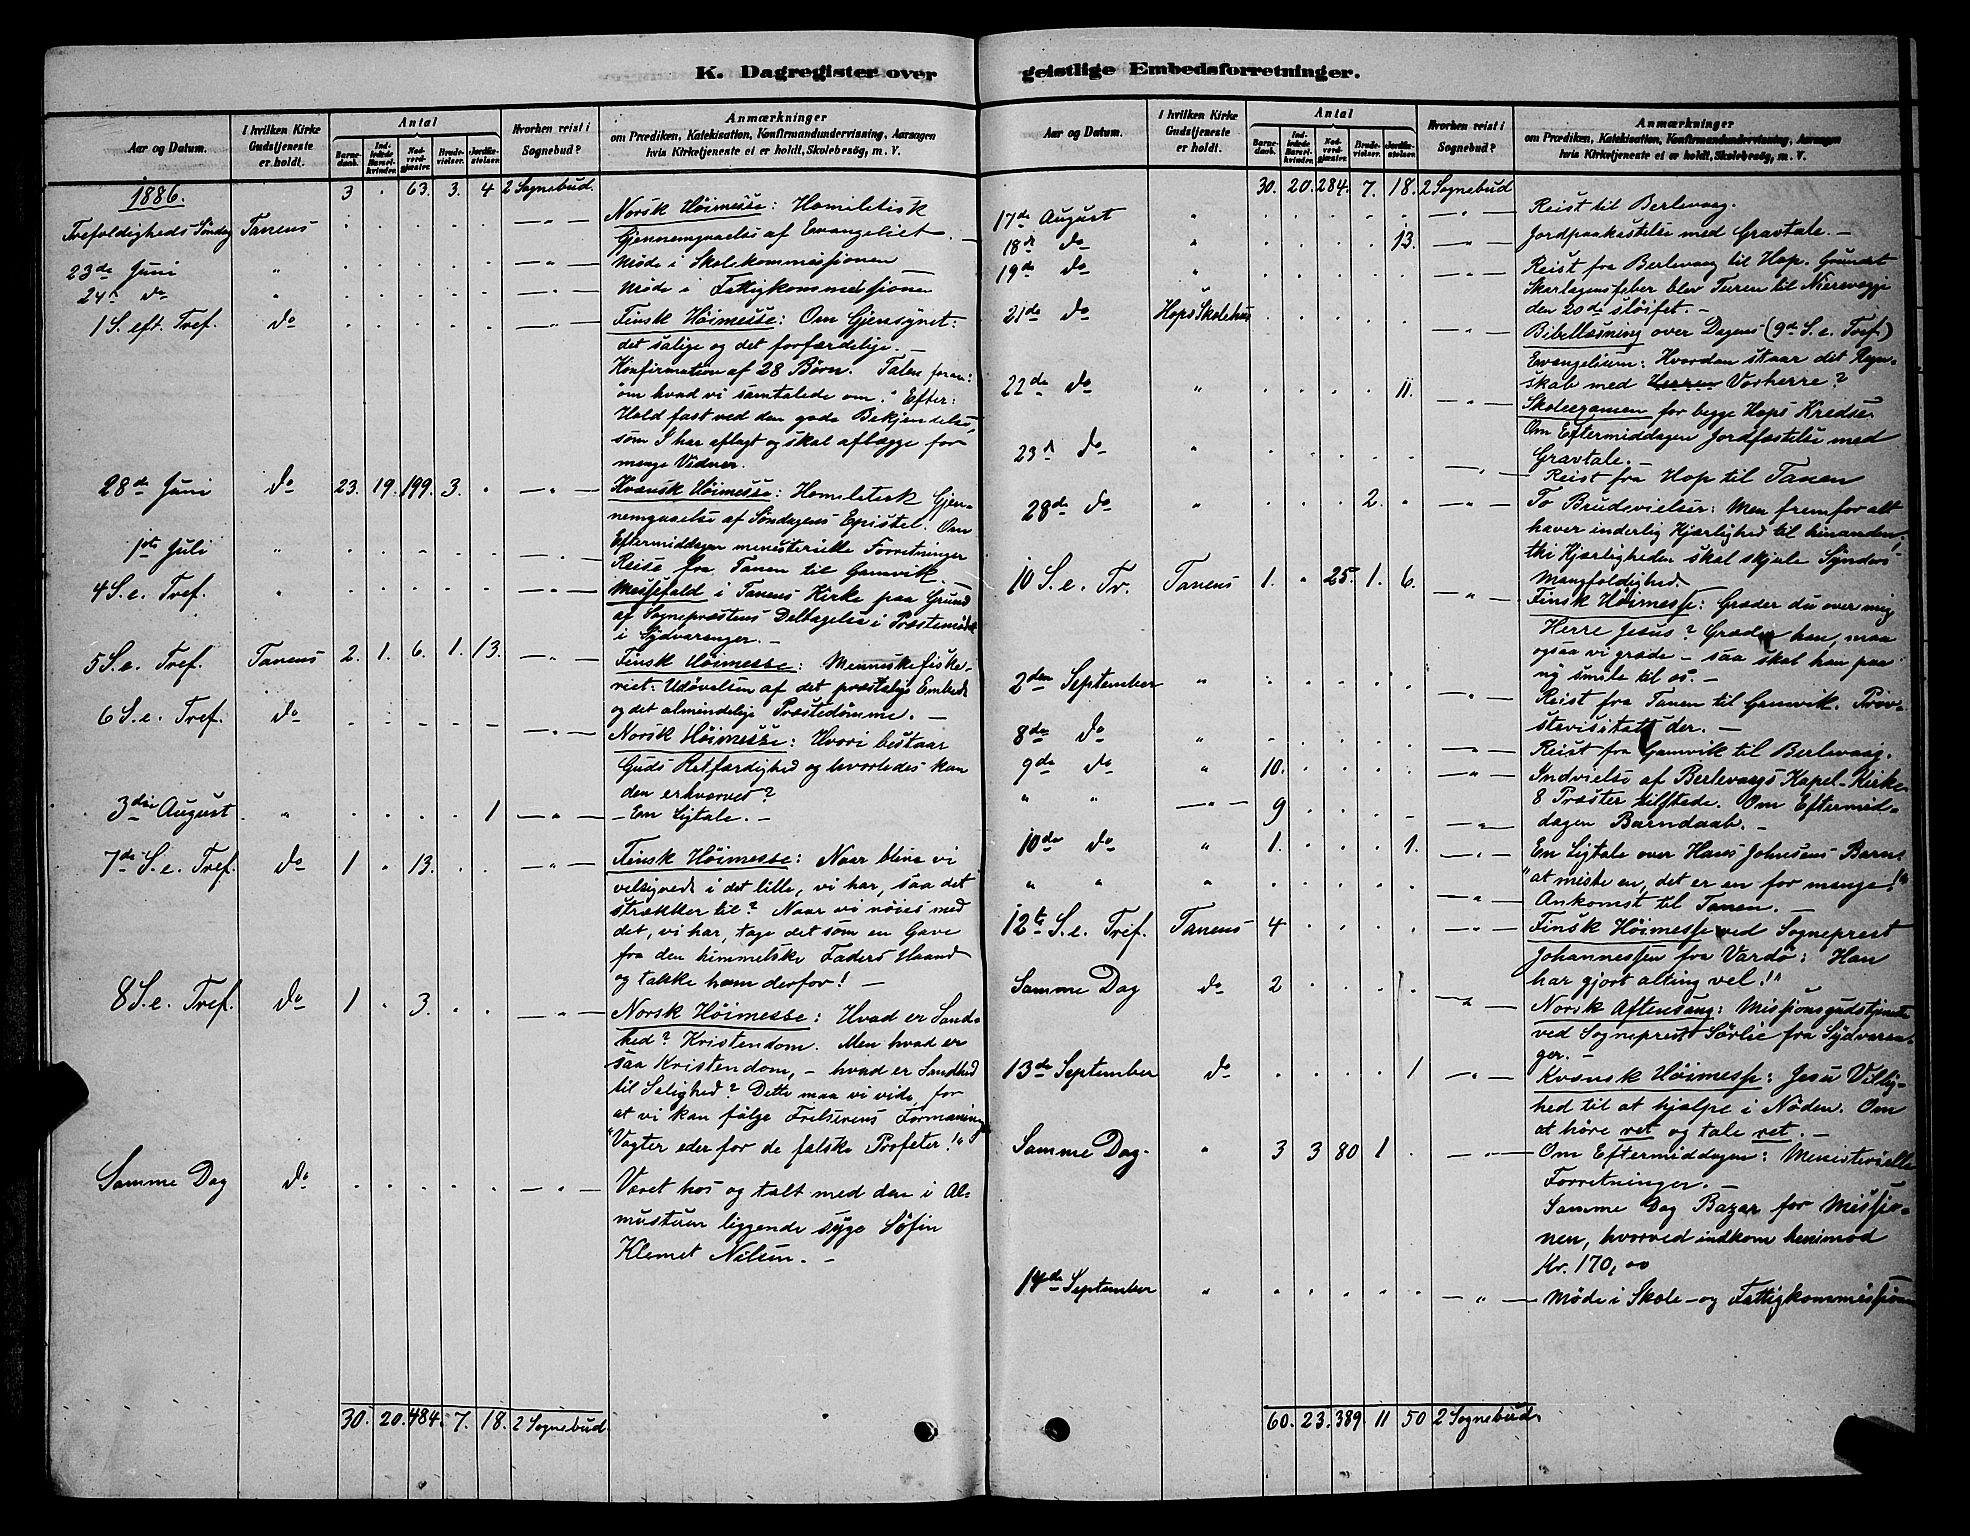 K. Dagregister over
Aar og Datum.
I hvilken Kirke Gudstjeneste er holdt.
Antal
Barnedaab.
Indledede Barselkvinder.
Nadverdgjæster.
Brudevielser.
Jordfæstelser.
Hvorhen reist i Sognebud?
Anmærkninger
om Prædiken, Katekisation, Konfirmandundervisning, Aarsagen
hvis Kirketjeneste ei er holdt, Skolebesøg, m. V.
1886. 3 " 63. 3. 4 2 Sognebud.
Trefoldigheds Søndag Tanens
Norsk Høimesse: Homiletisk
Gjennemgaaelse af Evangeliet. —
23de Juni " Møde i Skolekommissionen
24de do " Møde i Fattigkommissionen
1 S. eft. Tref. do Finsk Høimesse: Om Gjensynet:
det salige og det forfærdelige. —
Konfirmation af 28 Børn. Talen foran:
"om hvad vi samtalede om." Efter:
Hold fast ved den gode Bekjendelse,
som I har aflagt og skal aflægge for
mange Vidner.
28de Juni do 23. 19. 199. 3. Kvænsk Høimesse: Homiletisk Gjen-
nemgaaelse af Søndagens Epistel. Om
Eftermiddagen ministerielle Forretninger
1ste Juli " Reise fra Tanen til Gamvik. —
4 S. e. Tref. " Messefald i Tanens Kirke paa Grund
af Sogneprestens Deltagelse i Præstemøde
i Sydvaranger. —
5 S. e. Tref. Tanens 2. 1. 6. 1. 13. Finsk Høimesse: Menneskefiske-
riet: Udøvelsen af det præstelige Embede
og det almindelige Præstedømme. —
6 S. e. Tref. do Norsk Høimesse: Hvori bestaar
Guds Retfærdighed og hvorledes kan
den erhverves?
3die August " 1 En Ligtale. —
7de S. e. Tref. do 1 " 13. Finsk Høimesse: Naar blive vi
velsignede i det lille, vi har, saa det
strækker til? Naar vi nøies med
det, vi har, tage det som en Gave
fra den himmelske Faders Haand
og takke ham derfor! —
8 S. e. Tref. do 1 " 3. Norsk Høimesse: Hvad er Sand-
hed? Kristendom. Men hvad er
saa Kristendom, — hvad er Sandhed
til Salighed? Dette maa vi vide, for
at vi kan følge Frelserens Formaning
"Vogter eder for de falske Profeter!"
Samme Dag do Været hos og talt med den i Al-
mustuen liggende syge Søfin
Klemet Nilsen. —
30. 20. 484. 7. 18. 2 Sognebud.
geistlige Embedsforretninger.
Aar og Datum.
I hvilken Kirke Gudstjeneste er holdt.
Antal
Barnedaab.
Indledede Barselkvinder.
Nadverdgjæster.
Brudevielser.
Jordfæstelser.
Hvorhen reist i Sognebud?
Anmærkninger
om Prædiken, Katekisation, Konfirmandundervisning, Aarsagen
hvis Kirketjeneste ei er holdt, Skolebesøg, m. V.
30. 20. 284. 7. 18. 2 Sognebud
17de August " Reist til Berlevaag.
18de do " 13. Jordpaakastelse med Gravtale. —
19de do " Reist fra Berlevaag til Hop. Grundet
Skarlagensfeber blev Turen til
den 20de sløifet. —
21de do Hops Skolehus Bibellæsning over Dagens (9de S. e. Tref)
Evangelium: Hvordan staar det Regn-
skab med Herren Vorherre?
22de do " 11. Skoleexamen for begge Hops Kredse.
Om Eftermiddagen Jordfæstelse med
Gravtale. —
23de do " Reist fra Hop til Tanen
28de do " 2. To Brudevielser: Men fremfor alt
haver inderlig Kjærlighed til hinanden!
thi Kjærligheden skal skjule Synders
Mangfoldighed.
10 S. e. Tr. Tanens 1. " 25. 1. 6. Finsk Høimesse: Græder du over mig
Herre Jesus? Græder han, maa
ogsaa vi græde — saa skal han paa
ny smile til os. —
2den September " Reist fra Tanen til Gamvik. Prov-
stevisitats der. —
8de do " Reist fra Gamvik til Berlevaag.
9de do " 10. Indvielse af Berlevaags Kapel-Kirke
8 Præster tilstede. Om Eftermid-
" " 9 dagen Barndaab. —
10de do " 1. 1. En Ligtale over Hans Johnsens Barn:
"at miste en, det er en for mange!"
" " " Ankomst til Tanen. —
12te S. e. Tref. Tanens 4 Finsk Høimesse ved Sogneprest
Johannessen fra Vardø: Han
har gjort alting vel!"
Samme Dag do 2 Norsk Aftensang: Missionsgudstjeneste
ved Sogneprest Sørlie fra Sydvaran-
ger. —
13de September do 1 Kvænsk Høimesse: Jesu Villig-
hed til at hjælpe i Nøden. Om
at høre ret og tale ret. —
Samme Dag. " 3 3 80 1 Om Eftermiddagen: Ministerielle
Forretninger. —
Samme Dag Bazar for Missio-
nen, hvorved indkom henimod
Kr. 170,00
14de September " Møde i Skole- og Fattigkommissionen
60. 23. 389. 11 50 2 Sognebud.